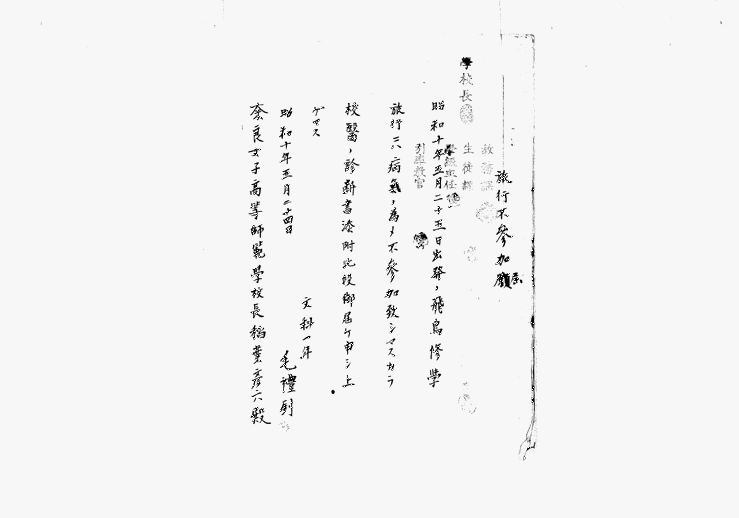 旅行不參加願届
教務課
生徒課
學校長
學級主任
引率教官
昭和十年五月二十五日出發ノ飛鳥修學
旅行ニハ病氣ノ為メ不參加致シマスカラ
校醫ノ診斷書添附此段御届ケ申シ上
ゲマス
昭和十年五月二十四日
文科一年
毛禮
奈良女子高等師範學校長稻葉彥六殿